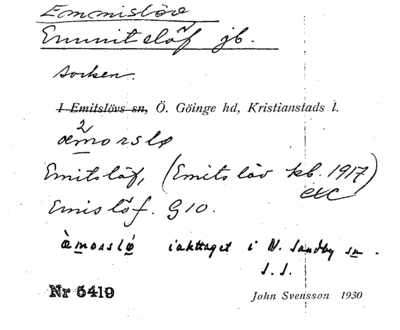 Emmislöv
Emmitslöf jb.
socken.
I Emitslövs sn, Ö. Göinge hd, Kristianstads l.
2
æmorslø
Emitslöf, (Emitslöv kb. 1917)
etc
Emislöf. G10.
æ̀morslø iakttaget i N. Sandby sn.
J. S.
Nr 5419
John Svensson 1930